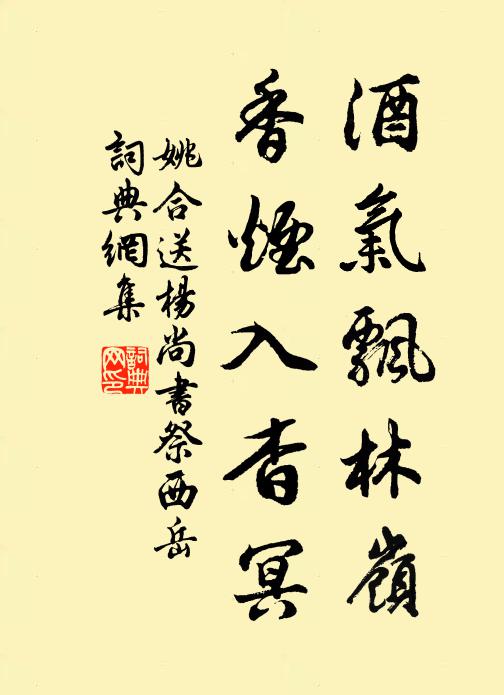 酒氣飄林嶺
香煙入杳冥
姚合送楊尚書祭西岳
詞典網集
詞典網印